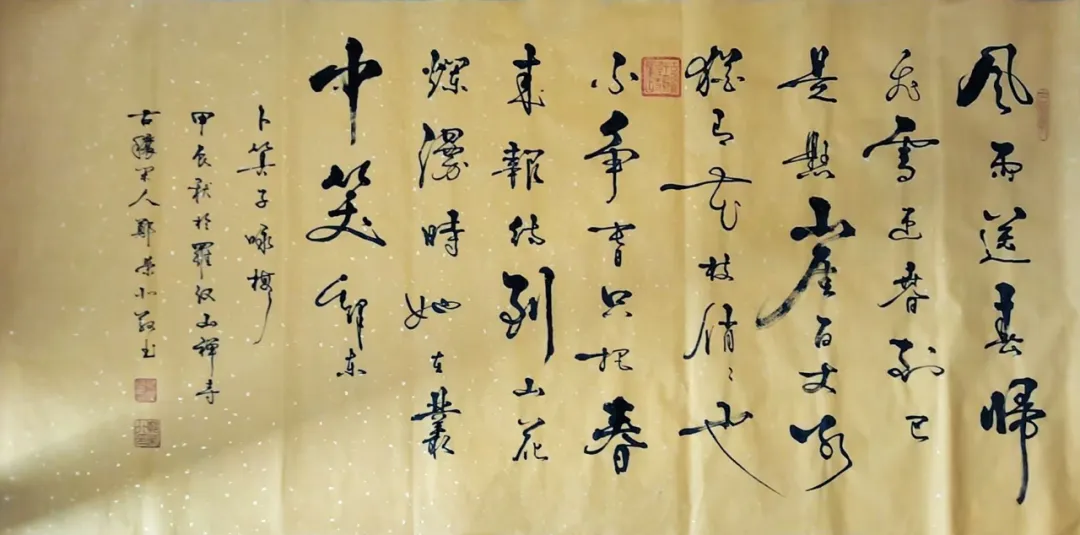 風雨送春歸
飛雪迎春到已
是懸崖百丈冰
猶有花枝俏〻也
不争春只把春
來報待到山花
爛漫時她在叢
中笑東
卜算子咏梅
甲辰秋於羅漢山禪寺
古人鄭榮小书